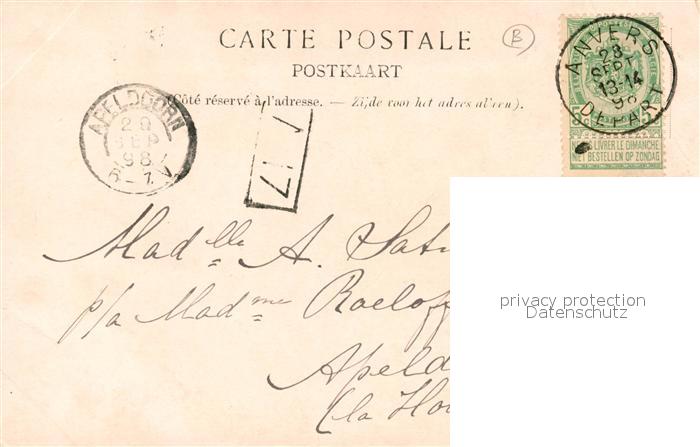 CARTE POSTALE
B
POSTKAART
(Côté réservé à l'adresse. — Zijde voor het adres alleen).
ANVERS
23
SEPT
13-14
98
DEPART
NE PAS LIVRER LE DIMANCHE
NIET BESTELLEN OP ZONDAG
APELDOORN
SEP
98
17
Mad lle A.
p/a Mad me Raeloff
Apeld
(la Ho
privacy protection
Datenschutz